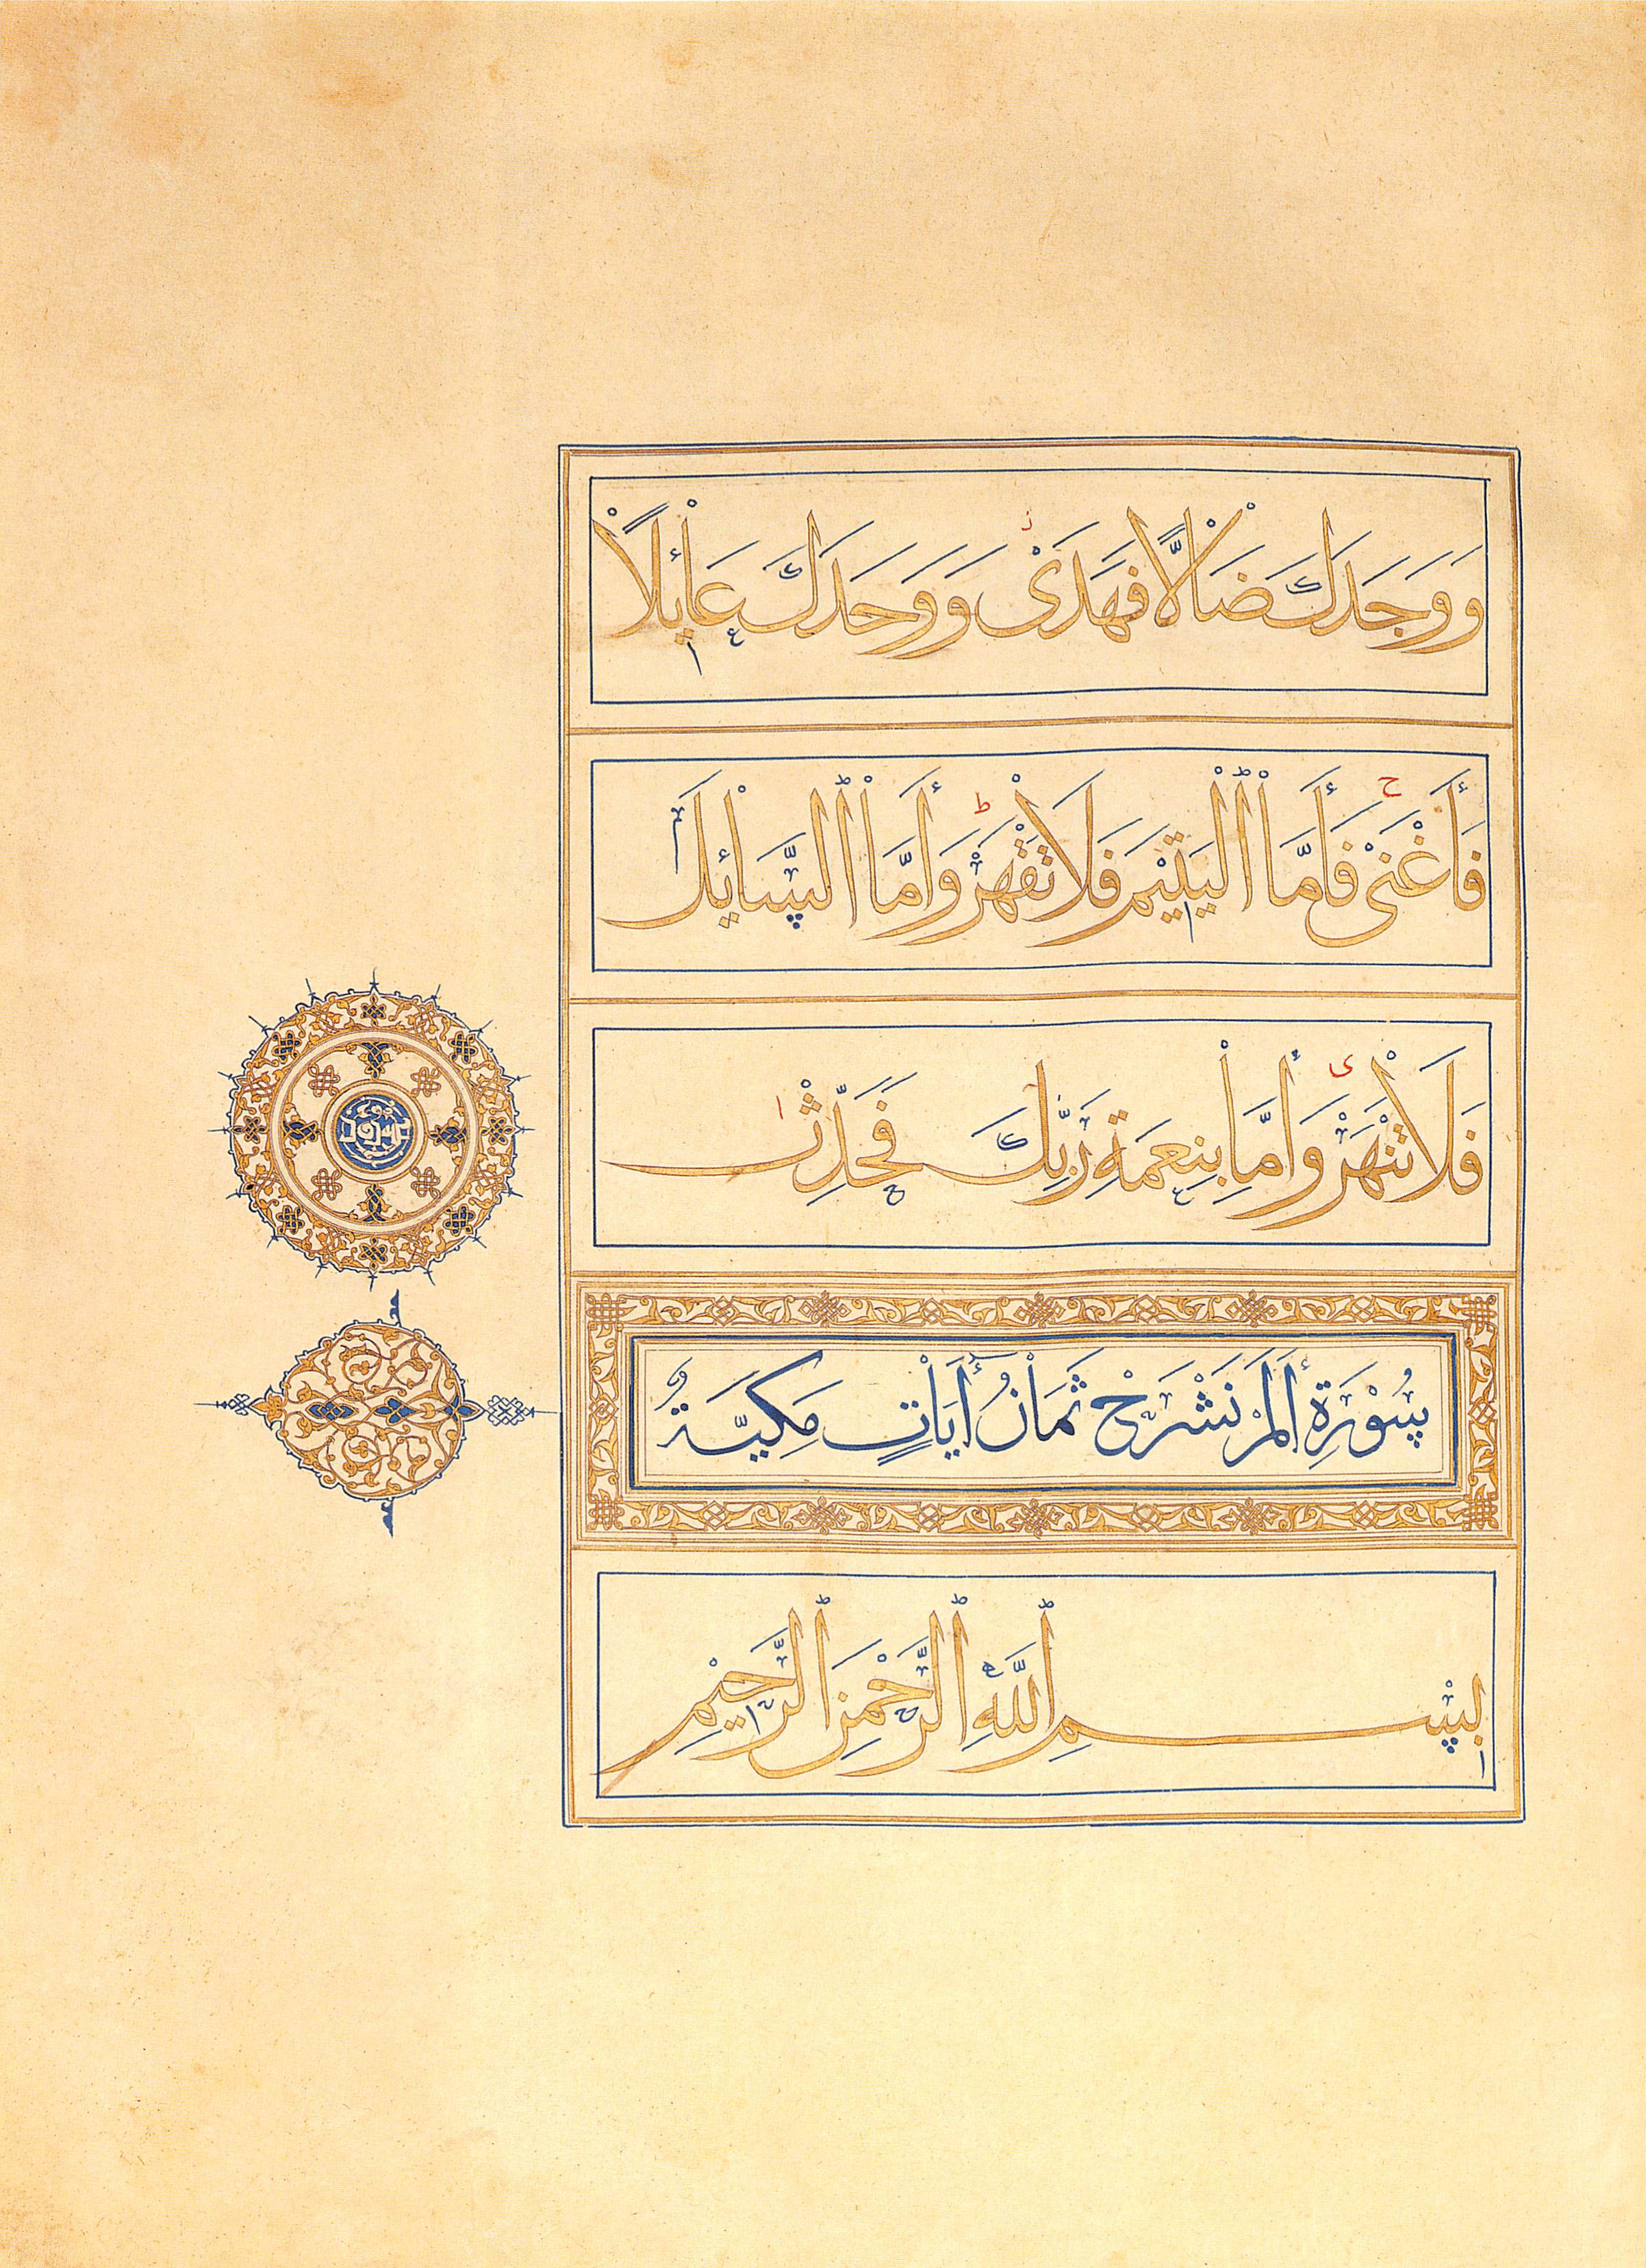 وَوَجَدَكَ ضَالًّا فَهَدَىٰ وَوَجَدَكَ عَائِلًا
فَأَغْنَىٰ فَأَمَّا الْيَتِيمَ فَلَا تَقْهَرْ وَأَمَّا السَّائِلَ
فَلَا تَنْهَرْ وَأَمَّا بِنِعْمَةِ رَبِّكَ فَحَدِّثْ
سُوْرَةِ أَلَمْ نَشْرَحْ ثَمَانُ أَيَاتٍ مَكِيَّةٌ
بِسْمِ اللَّهِ الرَّحْمَٰنِ الرَّحِيمِ